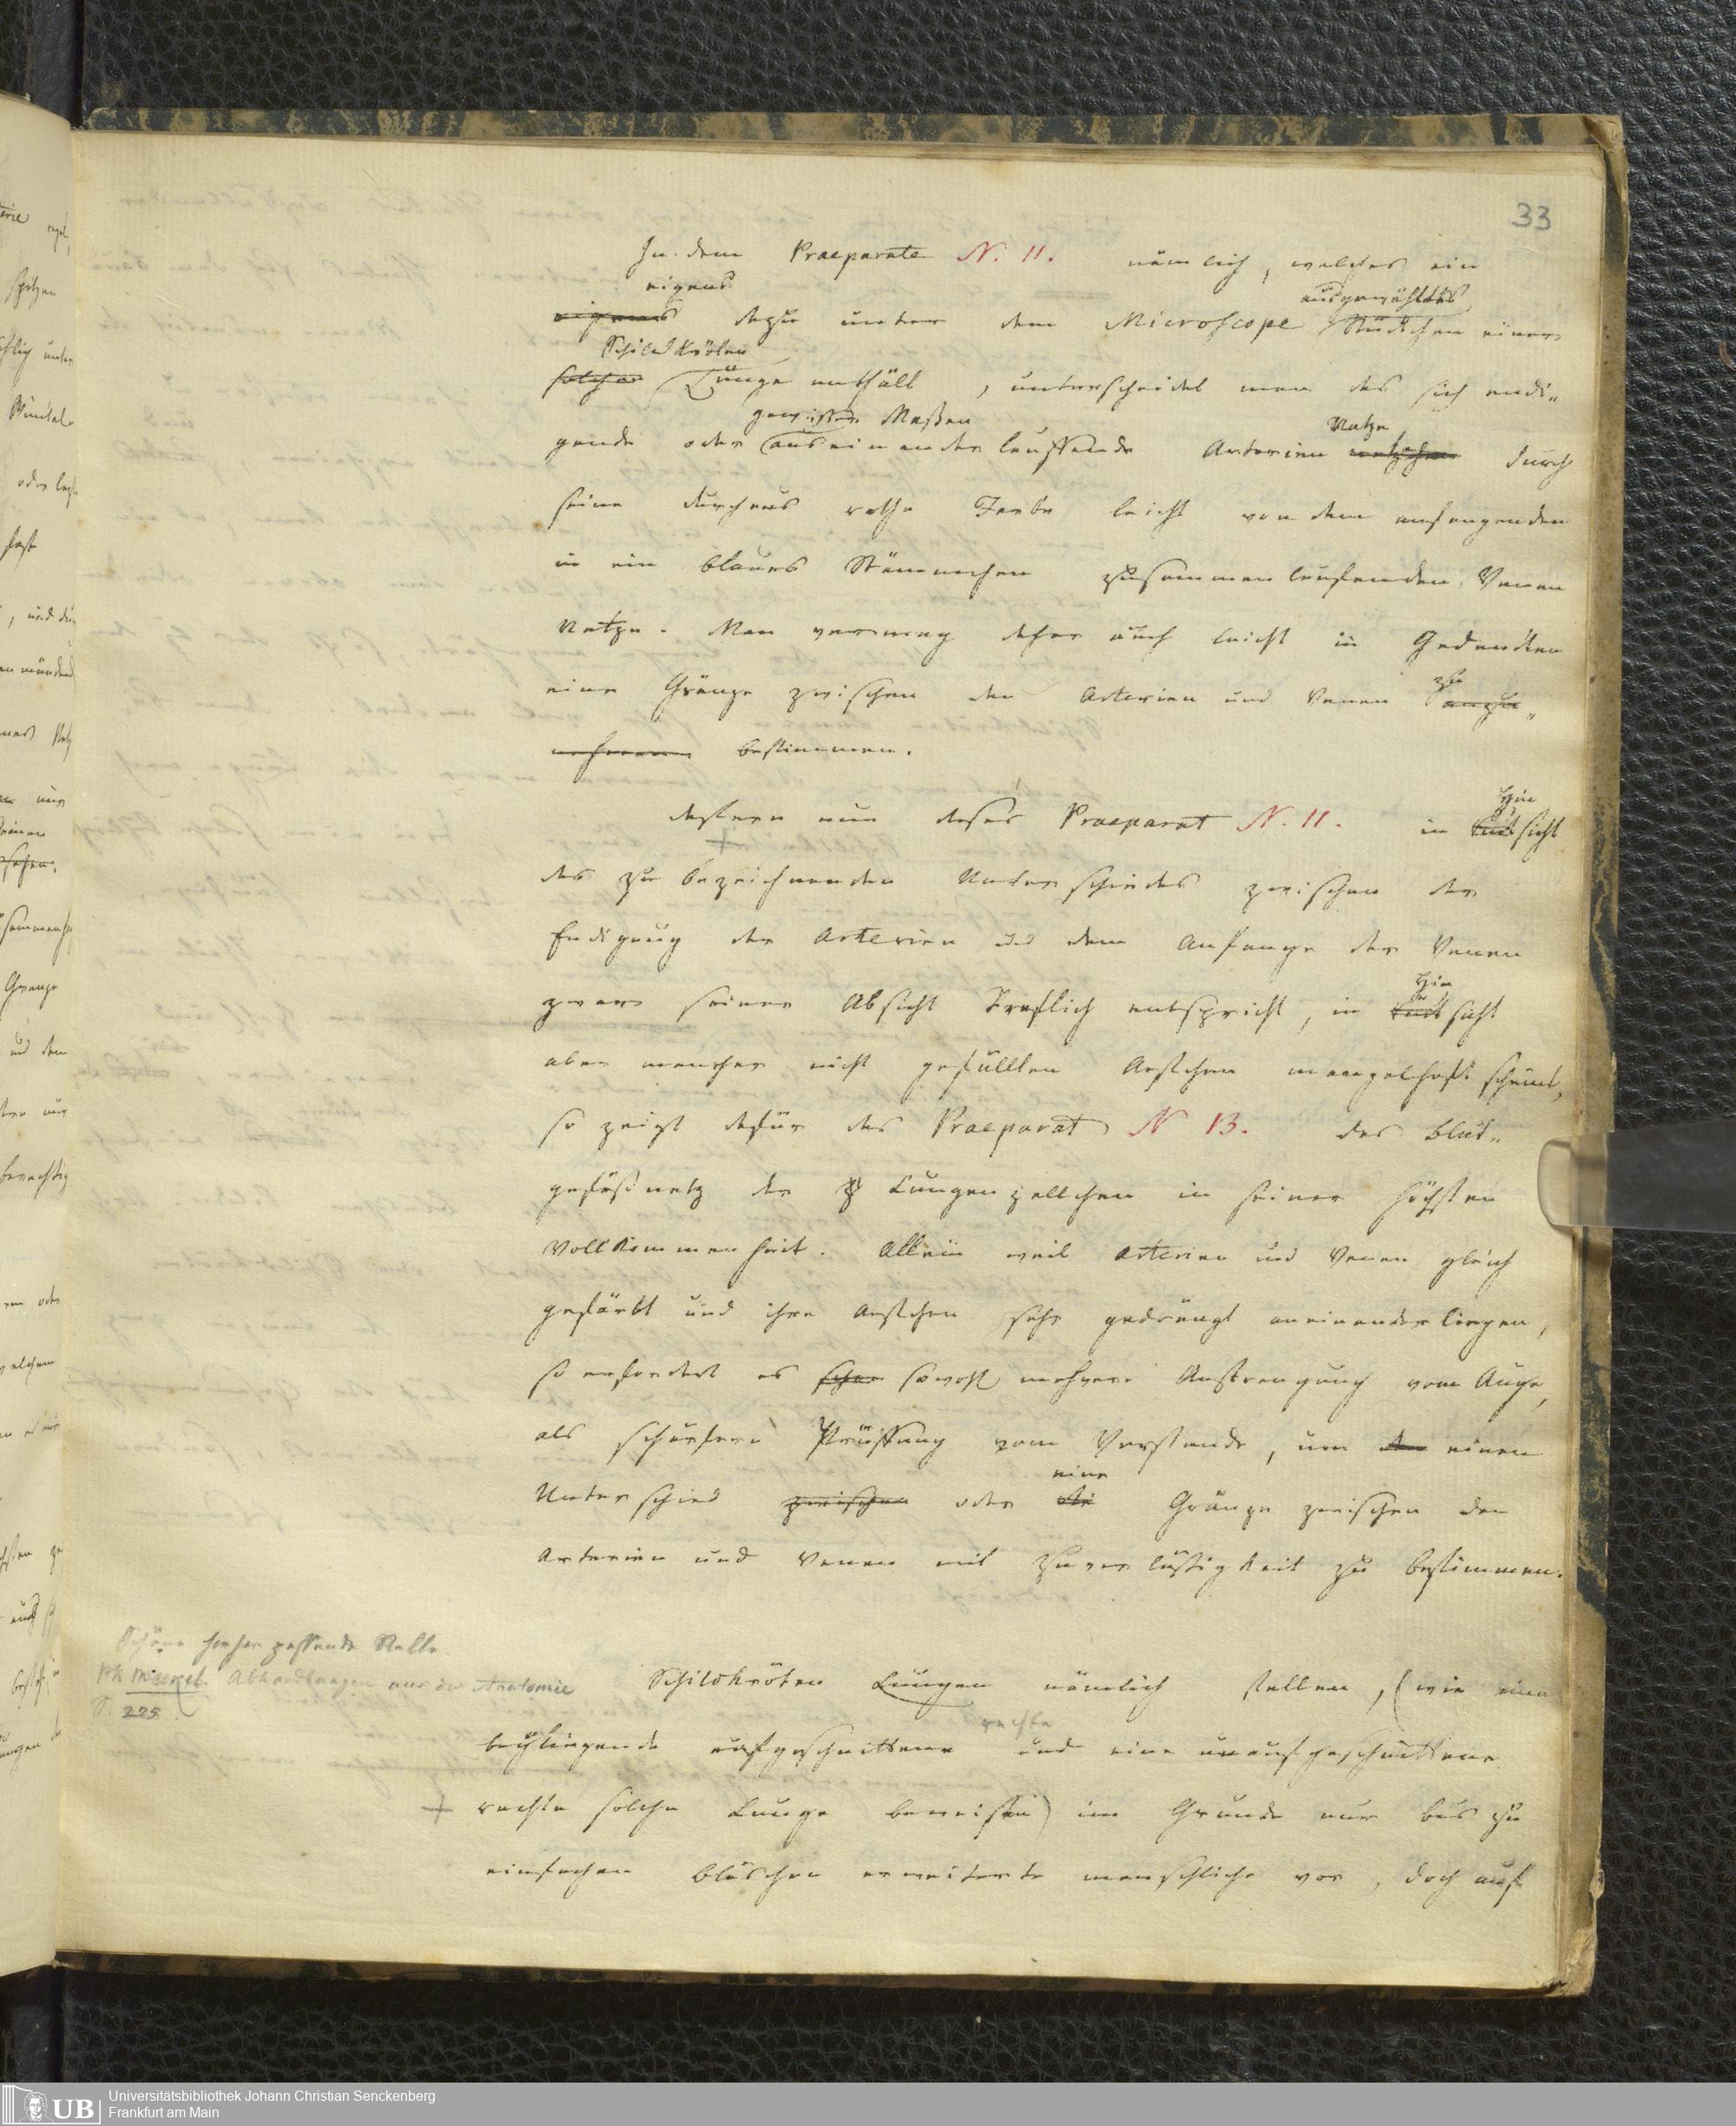 33
In dem Praeparate N. 11. nämlich, welches ein
eigens ausgewähltes
eigens dazu unter dem Microscope Stückchen einer
Schildkröten
solcher Lunge enthält, unterscheidet man das sich endi„
gewisser Maßen Netze
gende oder auseinander lauffende Arterien netzchen durch
seine durchaus rothe Farbe leicht von dem anfangenden
in ein blaues Stämmchen zusammenlaufenden Venen
Netze. Man vermag daher auch leicht in Gedancken
zu
eine Gränze zwischen den Arterien und Venen anzu„
nehmen bestimmen.
Hin
Wofern nun dieses Praeparat N. 11. in sicht
des zu bezeichnenden Unterschiedes zwischen der
Endigung der Arterien und dem Anfange der Venen
Hin
zwar seiner Absicht treflich entspricht, in sicht
aber mancher nicht gefüllten Aestchen mangelhaft scheint,
so zeigt dafür das Praeparat N 13. das Blut„
gefäßnetz der Lungenzellchen in seiner höchsten
Vollkommenheit. Allein weil Arterien und Venen gleich
gefärbt und ihre Aestchen sehr gedrängt aneinander liegen,
so erfordert es schon sowohl mehrere Anstrengung vom Auge,
als schärfere Prüffung vom Verstande, um den einen
eine
Unterschied zwischen oder die Gränze zwischen den
Arterien und Venen mit Zuverläßigkeit zu bestimmen.
Schöne hieher passende Stelle
Ph Meckel Abhandlungen aus der Anatomie
S. 225.
Schildkröten Lungen nämlich stellen, (wie eine
rechte
beyliegende aufgeschnittene und eine unaufgeschnittene
+ rechte solche Lunge beweisen) im Grunde nur bis zu
einfachen Bläschen erweiterte menschliche vor, doch auf
UB
Universitätsbibliothek Johann Christian Senckenberg
Frankfurt am Main